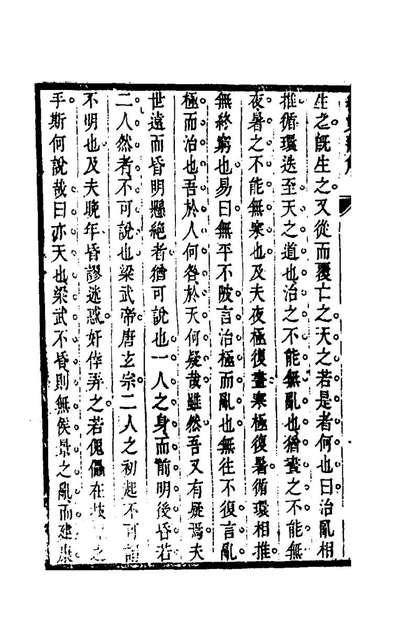 生之旣生之又從而覆亡之天之若是者何也曰治亂相
推循環迭至天之道也治之不能無亂也猶晝之不能無
夜暑之不能無寒也及夫夜極復晝寒極復暑循環相推
無終窮也易曰無平不陂言治極而亂也無往不復言亂
極而治也吾於人何咎於天何疑哉雖然吾又有疑焉夫
世遠而昏明懸絕者猶可說也一人之身而前明後昏若
二人然者不可說也梁武帝唐玄宗二人之初起不可謂
不明也及夫晚年昏謬迷惑奸倖弄之若傀儡在之
乎斯何說哉曰亦天也梁武不昏則無侯景之亂而建康